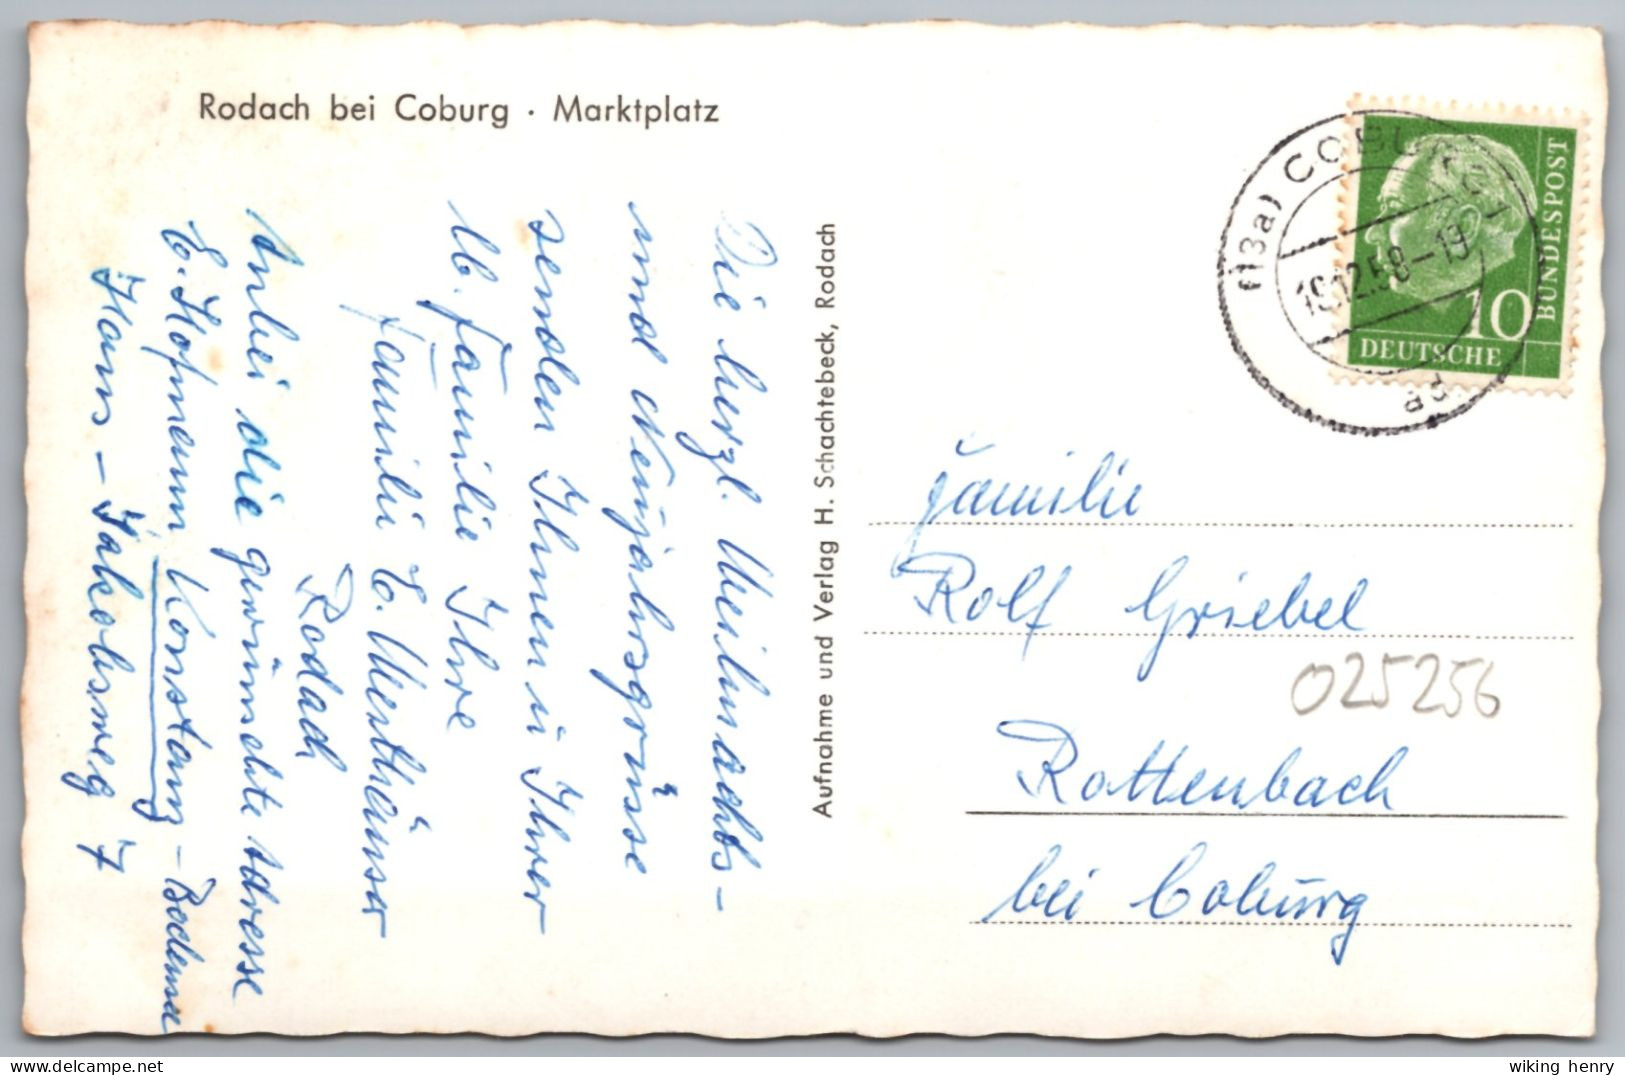 Rodach bei Coburg · Marktplatz
Die herzl. Weihnachts-
und Neujahrsgrüsse
senden Ihnen u Ihrer
lb. Familie Ihre
Familie E. Westhäuser
Rodach
Anbei die gewünschte Adresse
E. Hofmann Konstanz – Bodensee
Hans – Jakobsweg 7
Aufnahme und Verlag H. Schachtebeck, Rodach
(13a) COBURG 1
19.12.58–19
ag
DEUTSCHE
BUNDESPOST
10
Familie
Rolf Griebel
025256
Rottenbach
bei Coburg
wiking henry